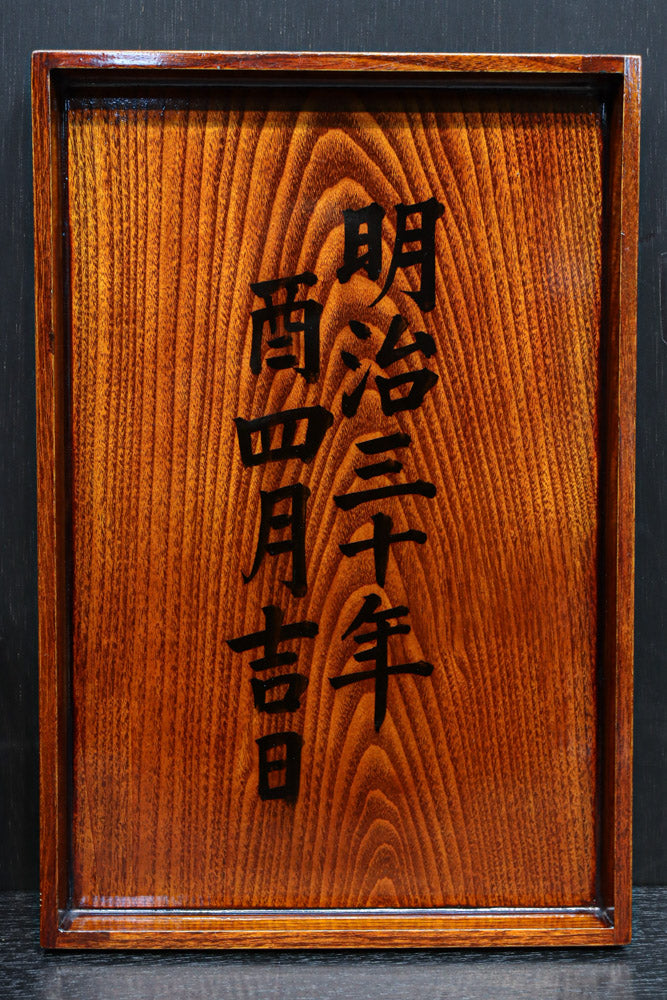 明治三十年
酉四月吉日